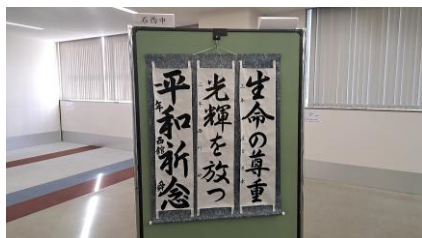 石西中
生命の尊重
光輝を放つ
平和祈念